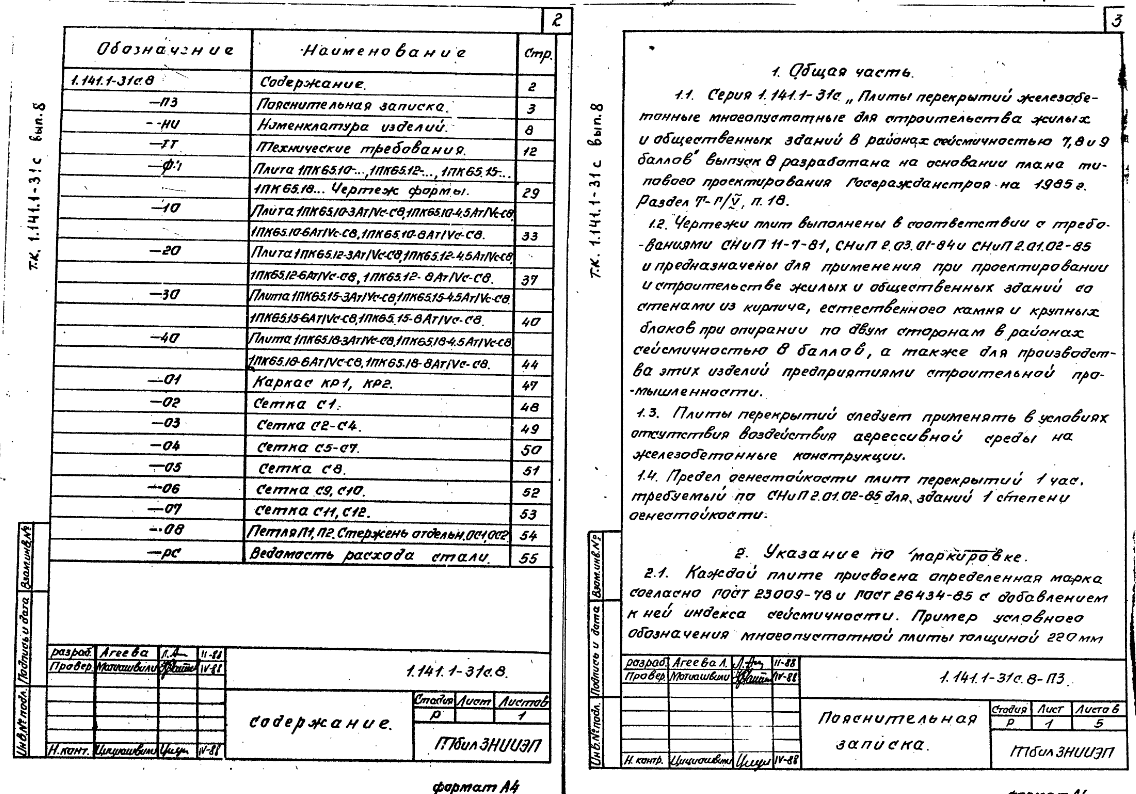 2
Обозначение Наименование Стр.
1.141.1-31с.8 Содержание. 2
—ПЗ Пояснительная записка. 3
—НИ Номенклатура изделий. 8
—ТТ Технические требования. 12
—Ф.1 Плита 1ПК65.10-..., 1ПК65.12-..., 1ПК65.15-...
1ПК65.18... Чертеж формы. 29
—10 Плита 1ПК65.10-3АтIVс-С8, 1ПК65.10-4,5АтIVс-С8
1ПК65.10-6АтIVс-С8, 1ПК65.10-8АтIVс-С8. 33
—20 Плита 1ПК65.12-3АтIVс-С8, 1ПК65.12-4,5АтIVс-С8
1ПК65.12-6АтIVс-С8, 1ПК65.12-8АтIVс-С8. 37
—30 Плита 1ПК65.15-3АтIVс-С8, 1ПК65.15-4,5АтIVс-С8
1ПК65.15-6АтIVс-С8, 1ПК65.15-8АтIVс-С8. 40
—40 Плита 1ПК65.18-3АтIVс-С8, 1ПК65.18-4,5АтIVс-С8
1ПК65.18-6АтIVс-С8, 1ПК65.18-8АтIVс-С8. 44
—01 Каркас КР1, КР2. 47
—02 Сетка С1. 48
—03 Сетка С2-С4. 49
—04 Сетка С5-С7. 50
—05 Сетка С8. 51
—06 Сетка С9, С10. 52
—07 Сетка С11, С12. 53
—08 Петля П1, П2. Стержень отдельн. ОС1, ОС2 54
—РС Ведомость расхода стали. 55
Т.К. 1.141.1-31с вып. 8
Взам.инв.№
Подпись и дата
Инв.№ подл.
разраб. Агеева II-88
Провер. Мотиашвили IV-88
Н.конт. Цициашвили IV-88
1.141.1-31с.8.
содержание.
Стадия Лист Листов
Р 1
ТбилЗНИИЭП
формат А4
3
1. Общая часть.
1.1. Серия 1.141.1-31с „Плиты перекрытий железобе-
тонные многопустотные для строительства жилых
и общественных зданий в районах сейсмичностью 7, 8 и 9
баллов" выпуск 8 разработана на основании плана ти-
пового проектирования Госгражданстроя на 1985 г.
Раздел Т-П/V, п. 18.
1.2. Чертежи плит выполнены в соответствии с требо-
-ваниями СНиП II-7-81, СНиП 2.03.01-84 и СНиП 2.01.02-85
и предназначены для применения при проектировании
и строительстве жилых и общественных зданий со
стенами из кирпича, естественного камня и крупных
блоков при опирании по двум сторонам в районах
сейсмичностью 8 баллов, а также для производст-
ва этих изделий предприятиями строительной про-
-мышленности.
1.3. Плиты перекрытий следует применять в условиях
отсутствия воздействия агрессивной среды на
железобетонные конструкции.
1.4. Предел огнестойкости плит перекрытий 1 час,
требуемый по СНиП 2.01.02-85 для зданий 1 степени
огнестойкости.
2. Указание по маркировке.
2.1. Каждой плите присвоена определенная марка
согласно ГОСТ 23009-78 и ГОСТ 26434-85 с добавлением
к ней индекса сейсмичности. Пример условного
обозначения многопустотной плиты толщиной 220 мм
Т.К. 1.141.1-31с вып. 8
Взам.инв.№
Подпись и дата
Инв.№ подл.
разраб. Агеева Л. II-88
Провер. Мотиашвили IV-88
Н. контр. Цициашвили IV-88
1.141.1-31с.8-ПЗ.
Пояснительная
записка.
Стадия Лист Листов
Р 1 5
ТбилЗНИИЭП